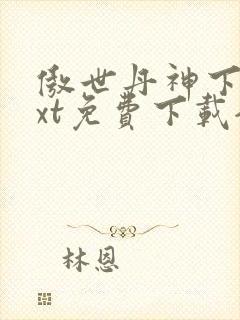 傲世丹神下
xt免費下載
林恩